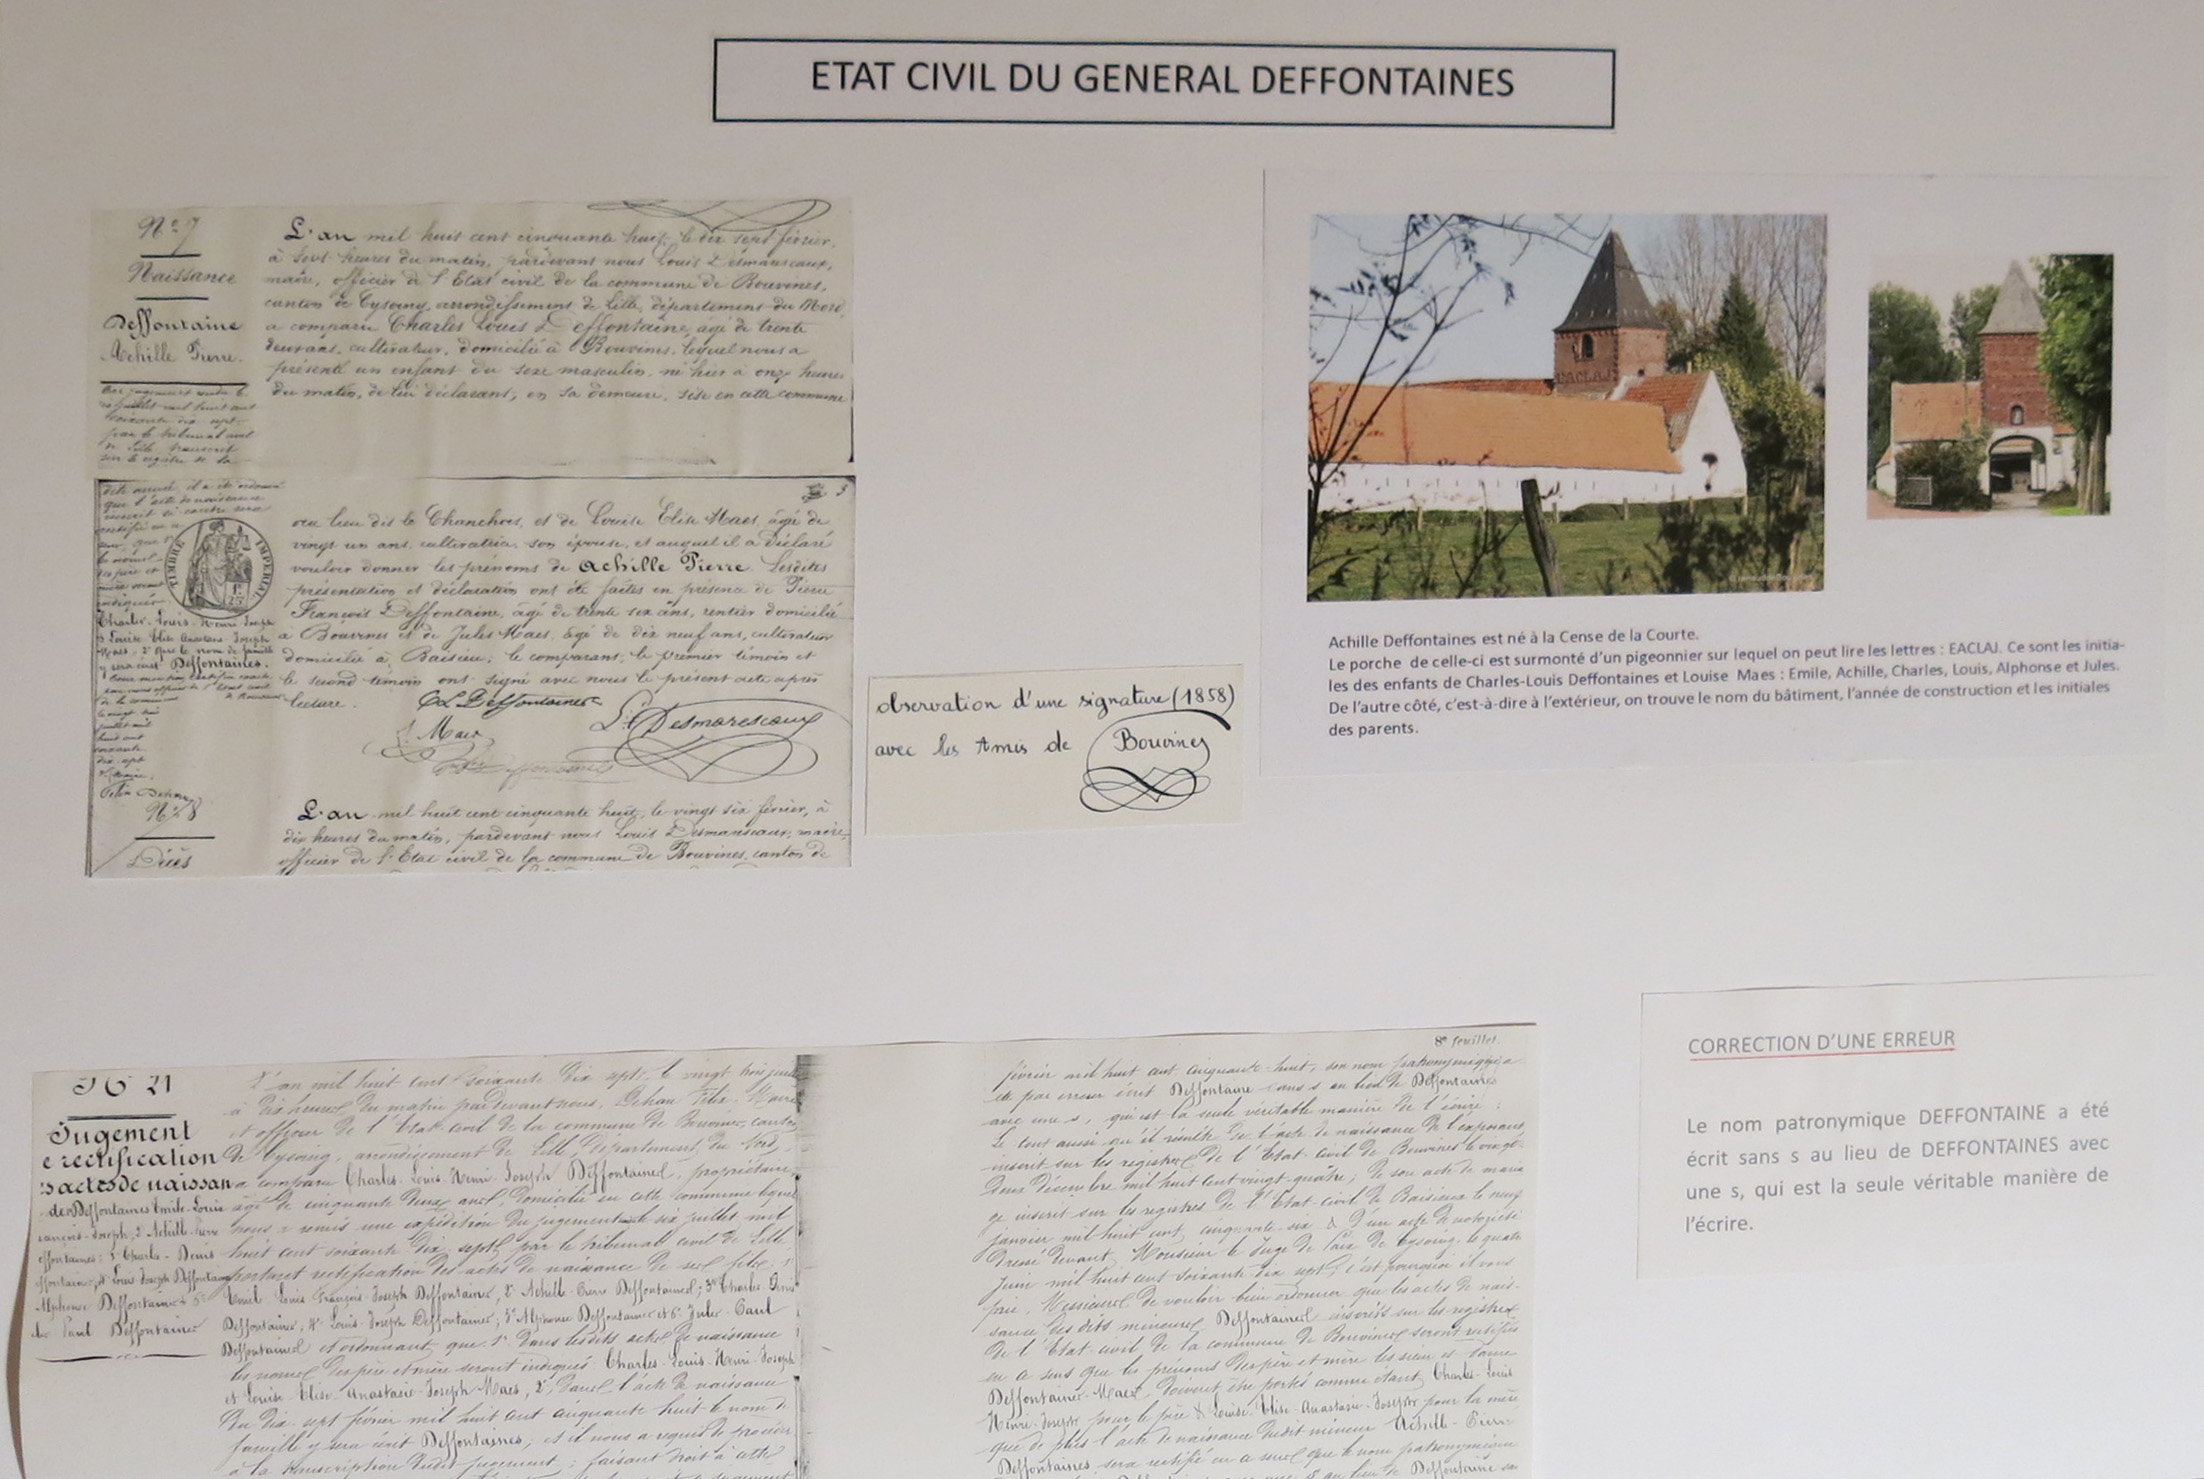 ETAT CIVIL DU GENERAL DEFFONTAINES
N° 7
Naissance
Deffontaine
Achille Pierre.
L'an mil huit cent cinquante huit, le dix sept février,
à sept heures du matin, pardevant nous Louis Desmarescaux,
maire, officier de l'Etat civil de la commune de Bouvines,
canton de Cysoing, arrondissement de Lille, département du Nord,
a comparu Charles Louis Deffontaine, âgé de trente
deux ans, cultivateur, domicilié à Bouvines, lequel nous a
présenté un enfant du sexe masculin, né hier à onze heures
du matin, de lui déclarant, en sa demeure, sise en cette commune
3
au lieu dit le Chanchers, et de Louise Elise Maes, âgé de
vingt un ans, cultivatrice, son épouse, et auquel il a déclaré
vouloir donner les prénoms de Achille Pierre. Lesdites
présentation et déclaration ont été faites en présence de Pierre
François Deffontaine, âgé de trente six ans, rentier domicilié
à Bouvines et de Jules Maes, âgé de dix neuf ans, cultivateur
domicilié à Baisieu; le comparant, le premier témoin et
le second témoin ont signé avec nous le présent acte après
lecture.
TIMBRE IMPERIAL
Charles-Louis-Henri-Joseph
Louise Elise Anastasie-Joseph
Maes, 2° que le nom de famille
y sera écrit Deffontaines.
CL Deffontaines
L. Desmarescaux
J. Maes
N° 8
Décès
L'an mil huit cent cinquante huit, le vingt six février, à
dix heures du matin, pardevant nous Louis Desmarescaux, maire,
officier de l'Etat civil de la commune de Bouvines, canton de
observation d'une signature (1858)
avec les Amis de Bouvines
EACLAJ
Achille Deffontaines est né à la Cense de la Courte.
Le porche de celle-ci est surmonté d'un pigeonnier sur lequel on peut lire les lettres : EACLAJ. Ce sont les initia-
les des enfants de Charles-Louis Deffontaines et Louise Maes : Emile, Achille, Charles, Louis, Alphonse et Jules.
De l'autre côté, c'est-à-dire à l'extérieur, on trouve le nom du bâtiment, l'année de construction et les initiales
des parents.
N° 21
Jugement
e rectification
s actes de naissan
de Deffontaines Emile-Louis
François-Joseph; 2° Achille-Pierre
effontaines; 3° Charles-Denis
effontaine, 4° Louis Joseph Deffontaines
Alphonse Deffontaines
Paul Deffontaines
L'an mil huit cent soixante dix sept, le vingt trois juillet
à dix heures du matin pardevant nous, Dehau Félix, Maire
et officier de l'Etat civil de la commune de Bouvines, canton
de Cysoing, arrondissement de Lille, Département du Nord,
a comparu Charles-Louis-Henri-Joseph Deffontaines, propriétaire
âgé de cinquante deux ans, domicilié en cette commune lequel
nous a remis une expédition du jugement rendu le six juillet mil
huit cent soixante dix sept par le tribunal civil de Lille
portant rectification des actes de naissance de ses fils: 1°
Emile-Louis-François-Joseph Deffontaines, 2° Achille-Pierre Deffontaines; 3° Charles-Denis
Deffontaines, 4° Louis-Joseph Deffontaines; 5° Alphonse Deffontaines et 6° Jules-Paul
Deffontaines et ordonnant que 1° dans lesdits actes de naissance
les noms des père et mère seront indiqués Charles-Louis-Henri-Joseph
et Louise-Elise-Anastasie-Joseph Maes, 2° dans l'acte de naissance
du dix-sept février mil huit cent cinquante huit le nom de
famille y sera écrit Deffontaines, et il nous a requis de procéder
à la transcription dudit jugement: faisant droit à cette
8e feuillet.
février mil huit cent cinquante-huit, son nom patronymique a
été par erreur écrit Deffontaine sans s au lieu de Deffontaines
avec une s, qui est la seule véritable manière de l'écrire:
Le tout aussi qu'il résulte de l'acte de naissance de l'exposant
inscrit sur les registres de l'Etat-civil de Bouvines le vingt-
deux décembre mil huit cent vingt quatre; de son acte de maria
ge inscrit sur les registres de l'Etat-civil de Baisieux le neuf
janvier mil huit cent cinquante-six & d'un acte de notoriété
dressé devant Monsieur le Juge de Paix de Cysoing, le quatre
juin mil huit cent soixante dix sept; c'est pourquoi il vous
prie, Messieurs de vouloir bien ordonner que les actes de nais-
sance des dits mineurs Deffontaines inscrits sur les registres
de l'Etat-civil de la commune de Bouvines seront rectifiés
en ce sens que les prénoms des père et mère les sieur et dame
Deffontaines-Maes, doivent être portés comme étant Charles-Louis
Henri-Joseph pour le père & Louise-Elise-Anastasie-Josephe pour la mère
que de plus l'acte de naissance dudit mineur Achille-Pierre
Deffontaines sera rectifié en ce sens que le nom patronymique
CORRECTION D'UNE ERREUR
Le nom patronymique DEFFONTAINE a été
écrit sans s au lieu de DEFFONTAINES avec
une s, qui est la seule véritable manière de
l'écrire.